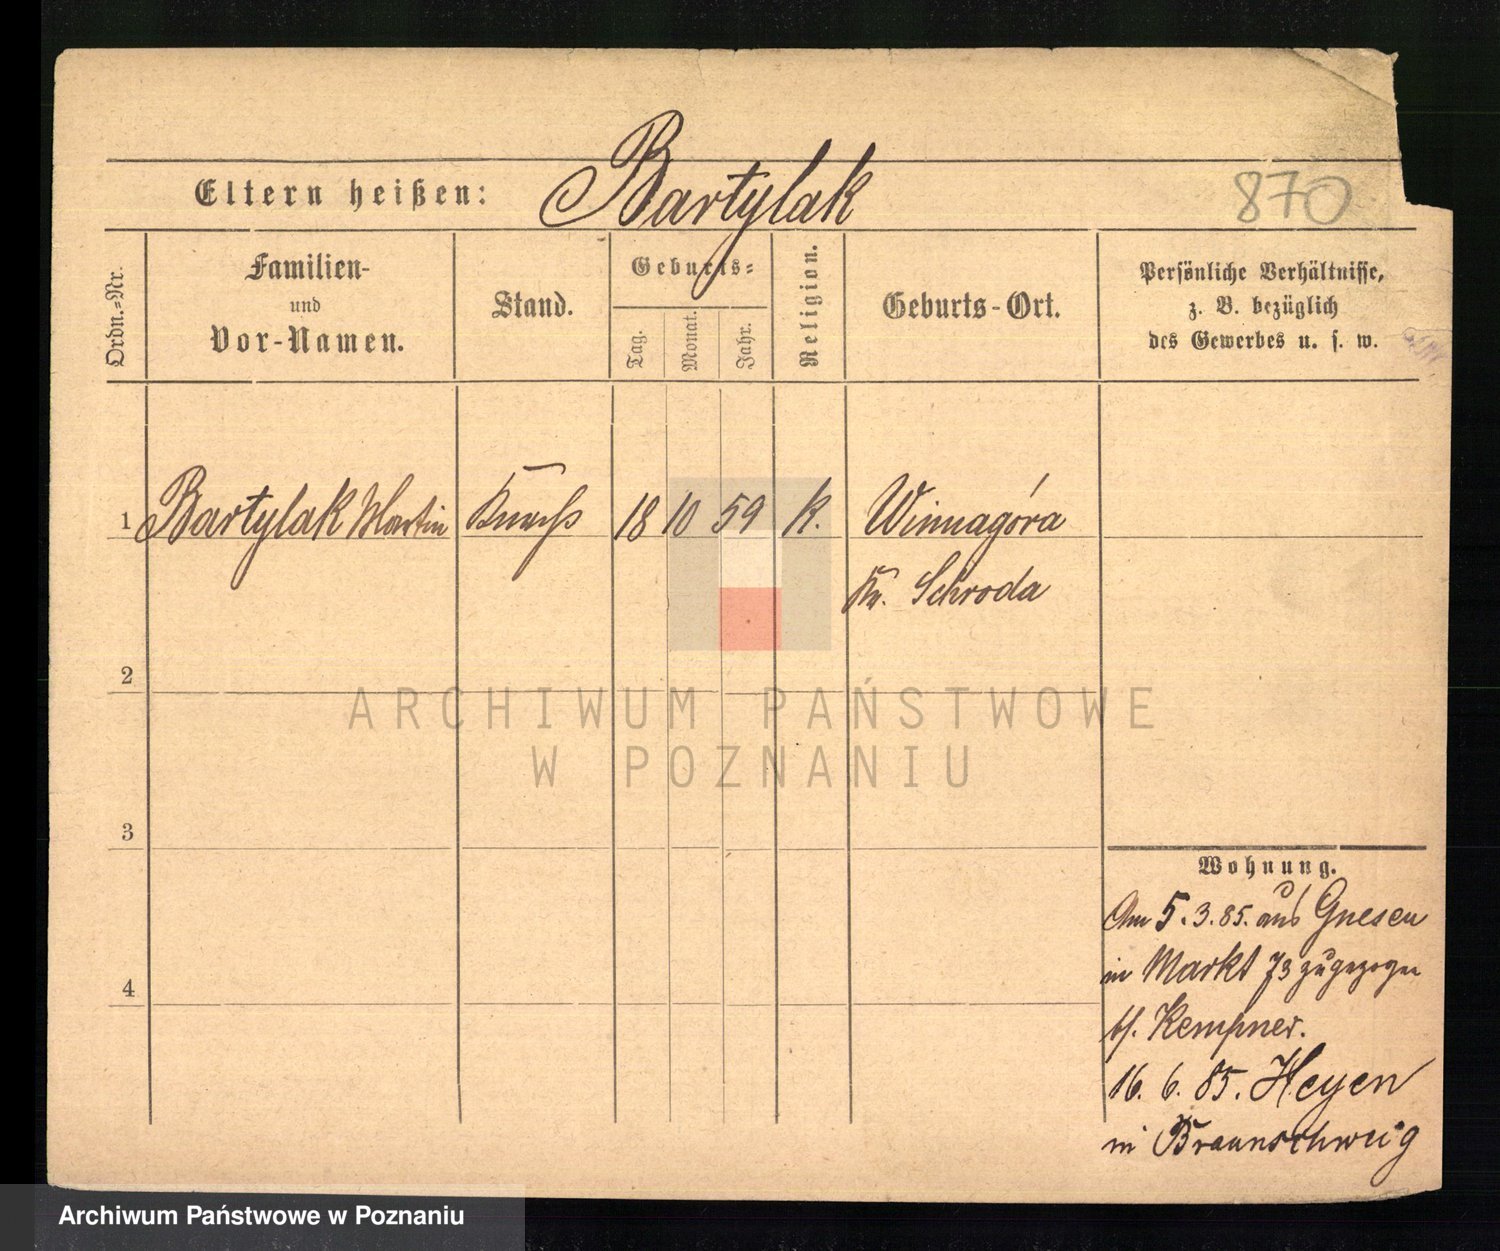 Eltern heißen: Bartylak
870
Ordn.-Nr.
Familien-
und
Vor-Namen.
Stand.
Geburts-
Tag.
Monat.
Jahr.
Religion.
Geburts-Ort.
Persönliche Verhältnisse,
z. B. bezüglich
des Gewerbes u. s. w.
1 Bartylak Martin Knecht 18 10 59 k. Winnagóra
Kr. Schroda
2
3
4
Wohnung.
Am 5.3.85. aus Gnesen
in Markt 73 zugezogen
b/. Kempner.
16. 6. 85. Heyen
in Braunschweig
ARCHIWUM PAŃSTWOWE
W POZNANIU
Archiwum Państwowe w Poznaniu